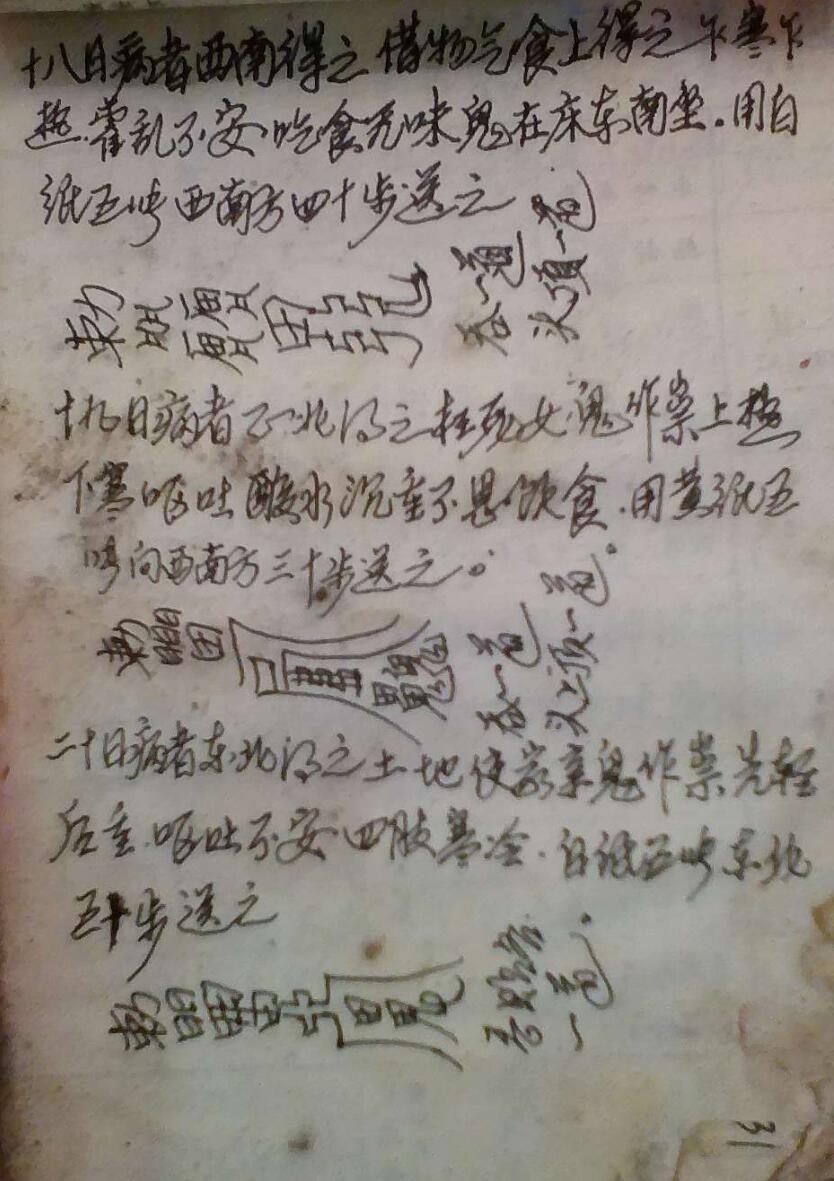 十八日病者西南得之借物气食上得之乍寒乍
热霍乱不安吃食无味鬼在床东南坐.用白
纸五𫵷西南方四十步送之
勅
吞一道
头顶一道
十九日病者正北得之枉死女鬼作祟上热
下寒呕吐酸水沉重不思饮食.用黄纸五
向西南方三十步送之。
勅
吞一道
头上顶一道。
二十日病者东北得之土地使家亲鬼作祟先轻
后重.呕吐不安四肢寒冷.白纸五 东北
五十步送之
勅
一道。
31